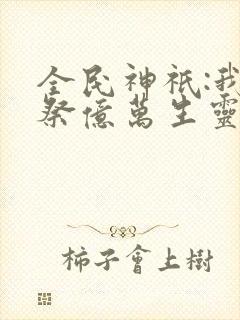 全民神祇:我
祭億萬生靈
柿子會上樹